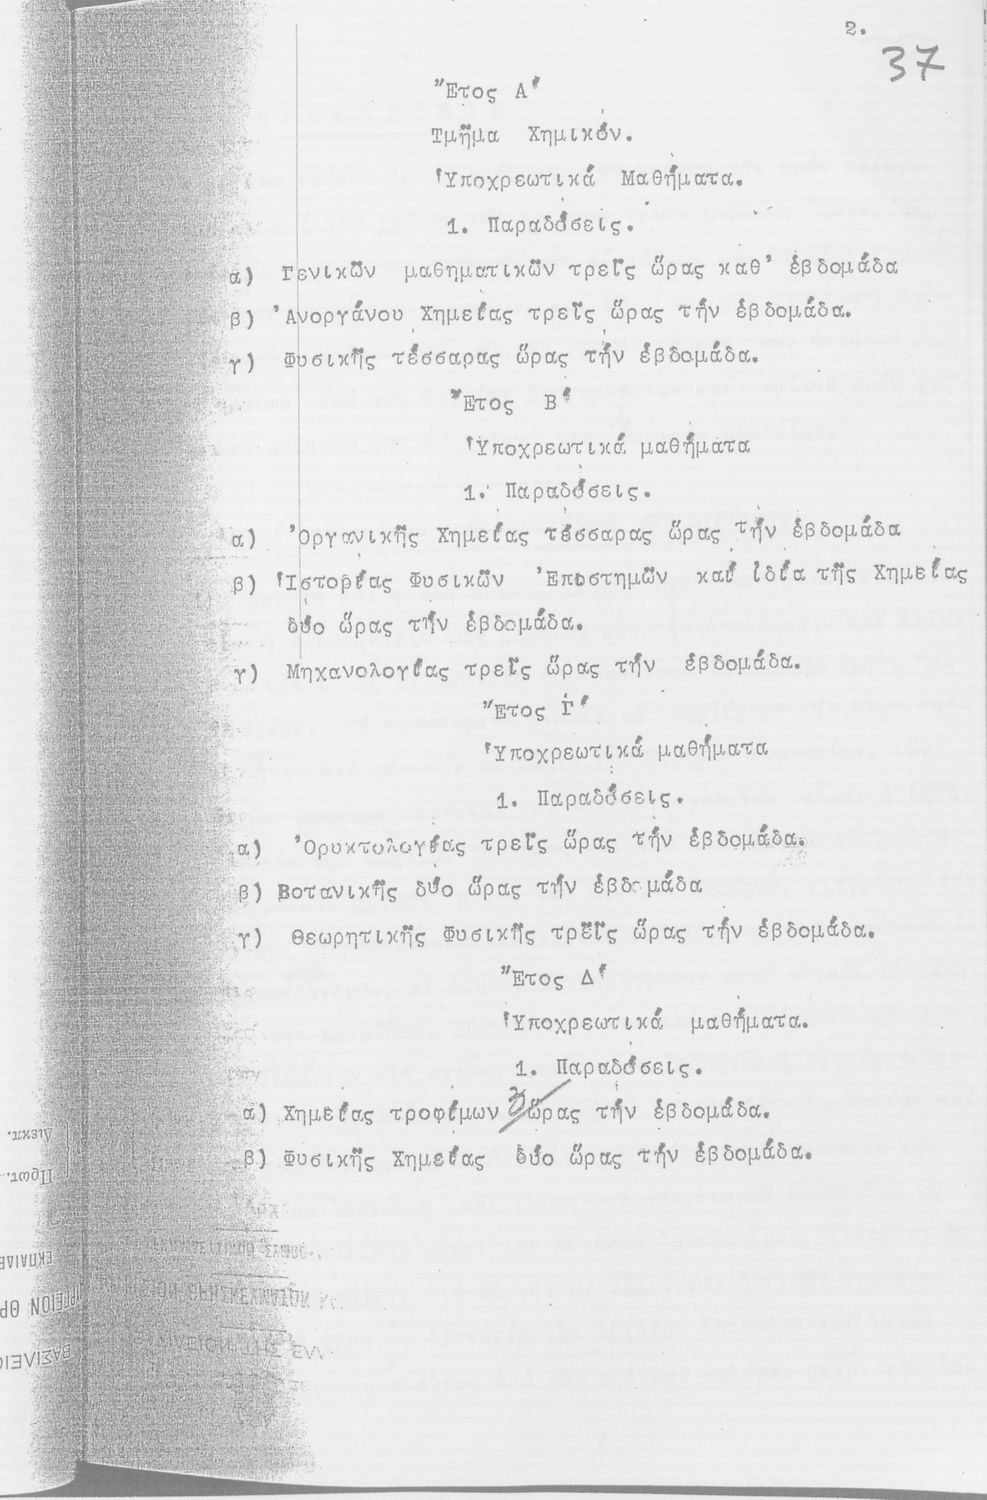 2.
37
Ἔτος Α΄
Τμῆμα Χημικόν.
Ὑποχρεωτικά Μαθήματα.
1. Παραδόσεις.
α) Γενικῶν μαθηματικῶν τρεῖς ὥρας καθ' ἑβδομάδα
β) Ἀνοργάνου Χημείας τρεῖς ὥρας τήν ἑβδομάδα.
γ) Φυσικῆς τέσσαρας ὥρας τήν ἑβδομάδα.
Ἔτος Β΄
Ὑποχρεωτικά μαθήματα
1. Παραδόσεις.
α) Ὀργανικῆς Χημείας τέσσαρας ὥρας τήν ἑβδομάδα
β) Ἱστορίας Φυσικῶν Ἐπιστημῶν καί ἰδία τῆς Χημείας
δύο ὥρας τήν ἑβδομάδα.
γ) Μηχανολογίας τρεῖς ὥρας τήν ἑβδομάδα.
Ἔτος Γ΄
Ὑποχρεωτικά μαθήματα
1. Παραδόσεις.
α) Ὀρυκτολογίας τρεῖς ὥρας τήν ἑβδομάδα.
β) Βοτανικῆς δύο ὥρας τήν ἑβδομάδα
γ) Θεωρητικῆς Φυσικῆς τρεῖς ὥρας τήν ἑβδομάδα.
Ἔτος Δ΄
Ὑποχρεωτικά μαθήματα.
1. Παραδόσεις.
α) Χημείας τροφίμων ὥρας τήν ἑβδομάδα.
β) Φυσικῆς Χημείας δύο ὥρας τήν ἑβδομάδα.